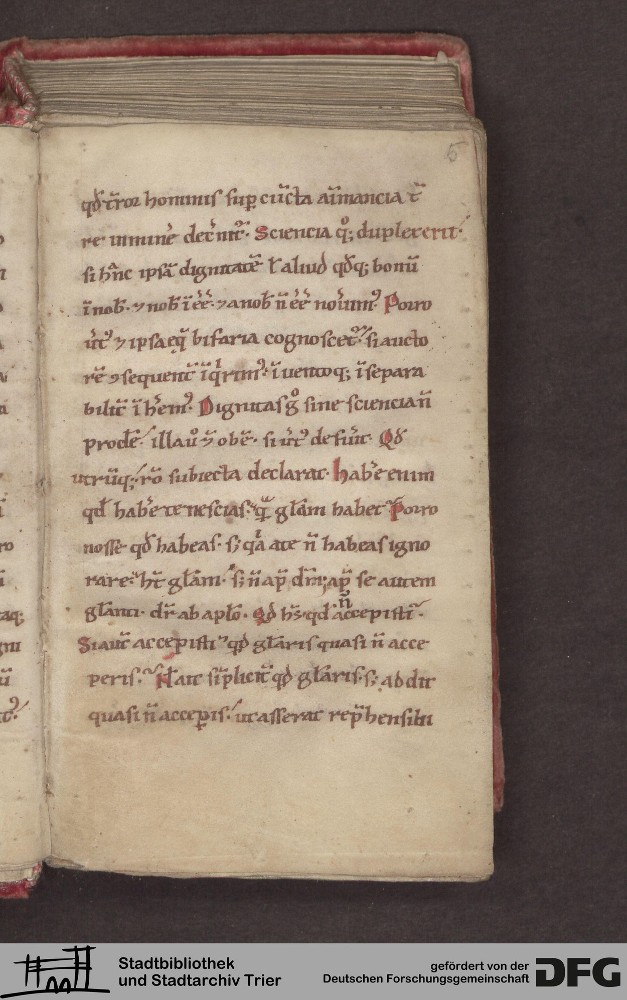 5
qđ t̄ror hominis sup̱ cūcta aīmancia t̄
re imminēe deт̄ mīť. Sciencia qͦ; duplex erit.
si hāc ipsā dignitatē ł aliud qđq; bonū
ī nob̄. ⁊ nob̄ īēē. ⁊ a nob̄ n̄ ēē novīm᷒ Porro
⁊ ipsa eq̄ bifaria cognoscet᷑. si aucto
rē ⁊ sequent̄
ī uentoq; īsepara
bilit̄ ī hēm᷒. Dignitas gͦ sine sciencia n̄
prodē. illa uͦ ⁊ obē. si
Qđ
utrūq; rō subiecta declarat. habe enim
qđ habēre nescias. q̄ gła̅m habet Porro
nosse qđ habeas. s; qa a te n̄ habeas igno
rare. ht̄ gła̅m. s; n̄ ap̄ dm̄; ap̄ se autem
gła̅nti. dr̄ ab apło. Qđ hs̄ qđ n̄ accepisti.
Si aūt accepisti qđ gła̅ris quasi n̄ acce
peris. N̄ ait sīplicit̄ qđ gła̅ris. s; addit
quasi n̄ acceperis. ut asserat rep̄hensibi
Stadtbibliothek
und Stadtarchiv Trier
gefördert von der
Deutschen Forschungsgemeinschaft
DFG